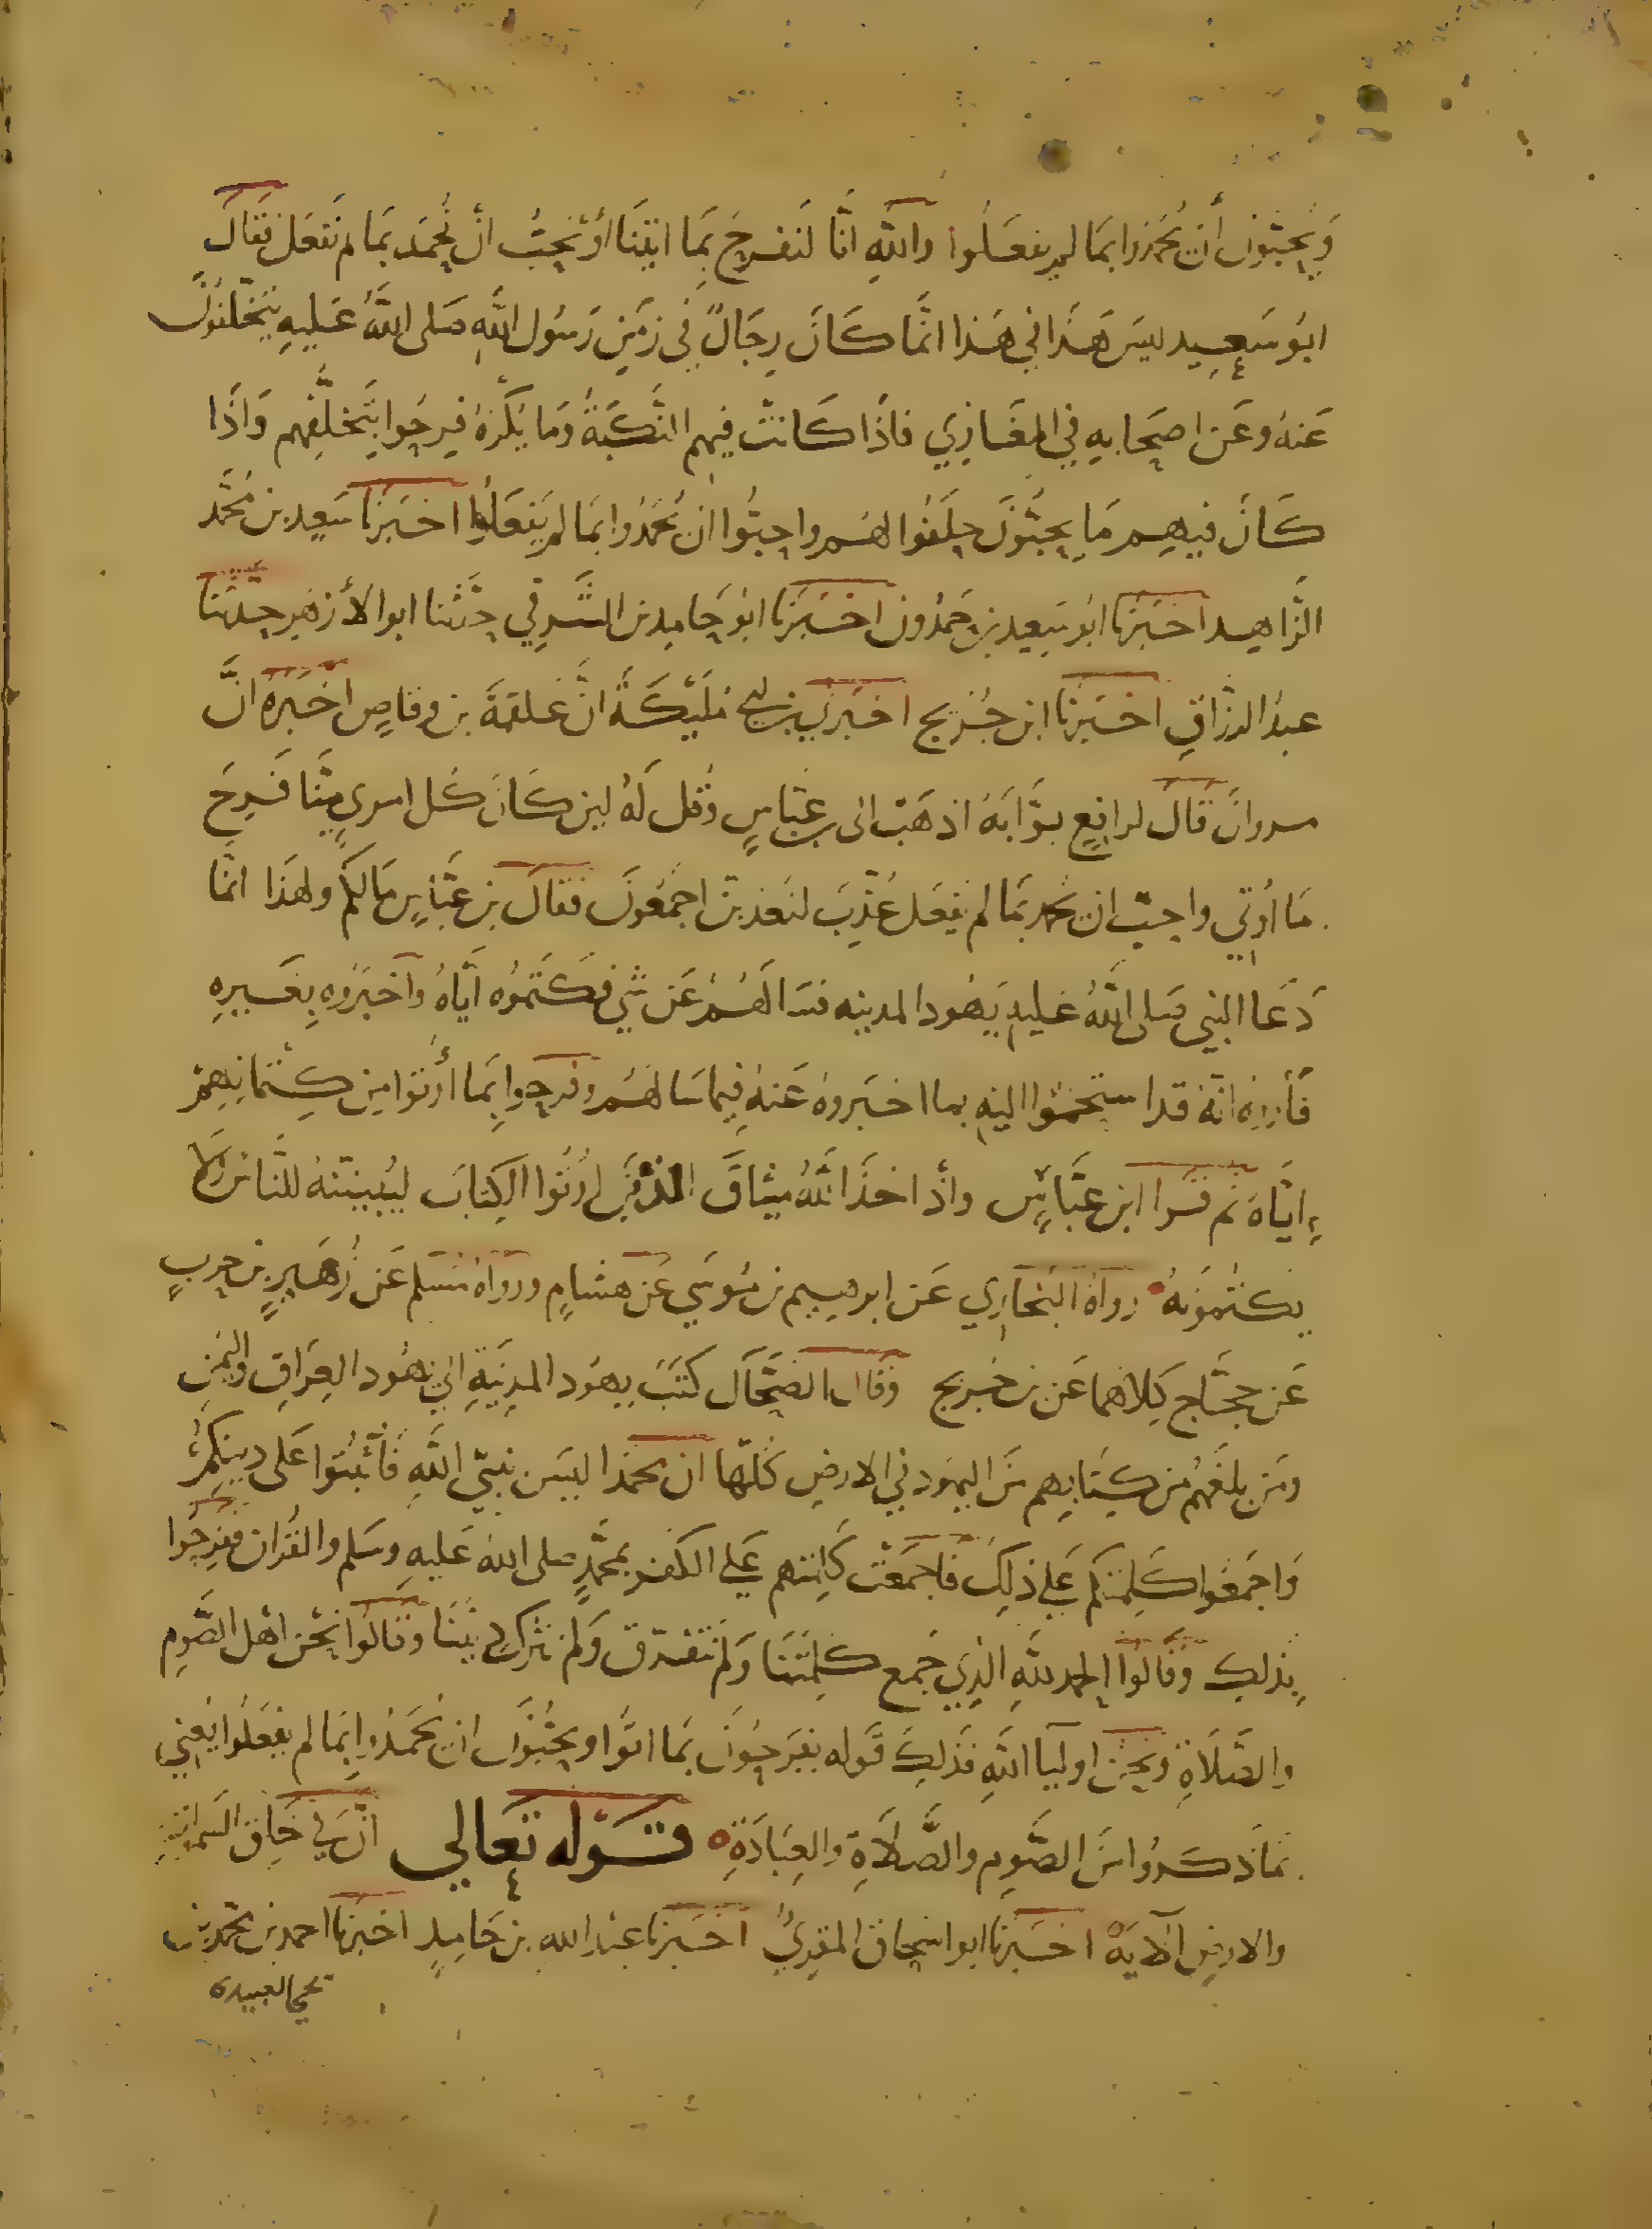 وَيُحِبّوُن أَن يُحمَدُوا بمَا لم يفعَلُوا والله انَّا لَنفرحُ بِمَا اتينَا ونحِبُّ انْ نُحمَد بمَا لم نَفعَل فقَالَ
ابوُ سَعِيد ليسَ هَذا في هَذا انمَّا كَانَ رِجَالٌ في زمَنِ رَسُول اللَّه صَلى اللَّهُ عَليهِ يتخَلَّفوُنَ
عَنهُ وعَن اصحَابهِ في المغَازِي فاذَا كَانتْ فيهم النَّكبَةُ ومَا يُكرَهُ فرِحُوا بِتَخلّفِهم وَاذَا
كَانَ فيهِم مَا يحِبُّونَ حلَفُوا لهُم واحبُّوا ان يُحمَدُوا بمَا لم يَفعَلُوا اخبَرَنا سَعِيد بن مُحمَّد
الزَّاهِد اخبَرَنا ابُو سَعِيد بن حَمدُون اخبَرَنا ابوُ حَامِد بن الشَّرقِي حدَّثنا ابوا الأزهَرِ حدّثنا
عبدُ الرزَّاق اخبَرَنا ابن جُرَيج اخبَرَني بن ابي مُلَيْكَةَ انَّ عَلقَمَةَ بن وقاصٍ اخبَرَهُ انَّ
مروانَ قالَ لرافِعٍ بوَّابَهُ اذهَبْ الى بن عَبّاسٍ وقُل لَهُ لين كَانَ كُل امرىٍ مِنَّا فَرِحَ
مَا اُوتي واحبّ ان يحمد بمَا لم يفعَل عُذّبَ لنعَذبنّ اجمَعُونَ فقَالَ بن عَبَّاسٍ مَالكُم ولهذَا انمَّا
دَعَا النبي صَلى اللَّهُ عَليهِ يَهُود المدينه فسَالَهُم عَن شيٍ فكَتَمُوه ايَّاهُ واخبَرُوه بِغَيرِهِ
فَأرَوه انّهُ قد استحمَدُوا اليه بما اخبَروهُ عَنهُ فيمَا سَالهُم وفرِحوا بِمَا أُوتوا مِن كِتمَانِهِمْ
ايَّاهُ ثم قَرَا ابن عَبَّاسٍ واذْ اخذَ اللَّهُ ميثاقَ الذينَ اُوتُوا الكِتابَ ليُبينّنهُ للنَّاس ولا
يكتُمُونَهُ رواهُ البُخَارِي عَن ابرهِيم بن مُوسَي عَن هشامٍ ورواهُ مُسلم عَن زُهَيرٍ بن حربٍ
عَن حجَّاج كِلاهما عَن بن جُرَيج وقَال الضحَّاك كتَبَ يهوُد المدِينَةِ الي يهُود العِرَاقِ واليَمَنِ
ومَن بلغَهُم مِن كِتابِهم مِنَ اليهوُد في الارضِ كُلّها ان محمدا ليسَ نبيّ اللَّهِ فَأثبُتوا عَلى دينِكُم
وَاجمَعُوا كَلِمَتكم عَلي ذلِكَ فَاجمعَتْ كَلِمَتهم عَلي الكفر بمحَمَّدٍ صلى اللهُ عَليهِ وسَلم والقُران ففرِحُوا
بِذلِكَ وقَالوُا الحمد للَّهِ الذِي جَمع كَلِمَتَنَا ولم نَتفرّق وَلم نترك دِينَنَا وقَالوُا نحْن اهْل الصَّومِ
والصّلاةِ ونحن اوليَا اللَّهِ فذلِكَ قَوله يفرَحوُنَ بمَا اتَوا ويحِبُّونَ ان يحْمَدُوا بِمَا لم يفعَلُوا يعْني
بمَا ذكَرُوا منَ الصَّومِ والصَّلاَةِ والعِبَادَةِ قَولهُ تعَالي انَّ في خَلقِ السَّمواتِ
والارضِ الآيَة اخبَرَنا ابوا اسحَاق المقرِيُّ اخبَرَنا عبْد الله بن حَامِدٍ اخبرَنا احمد بن محمّد بن
يحيَ العبيدى